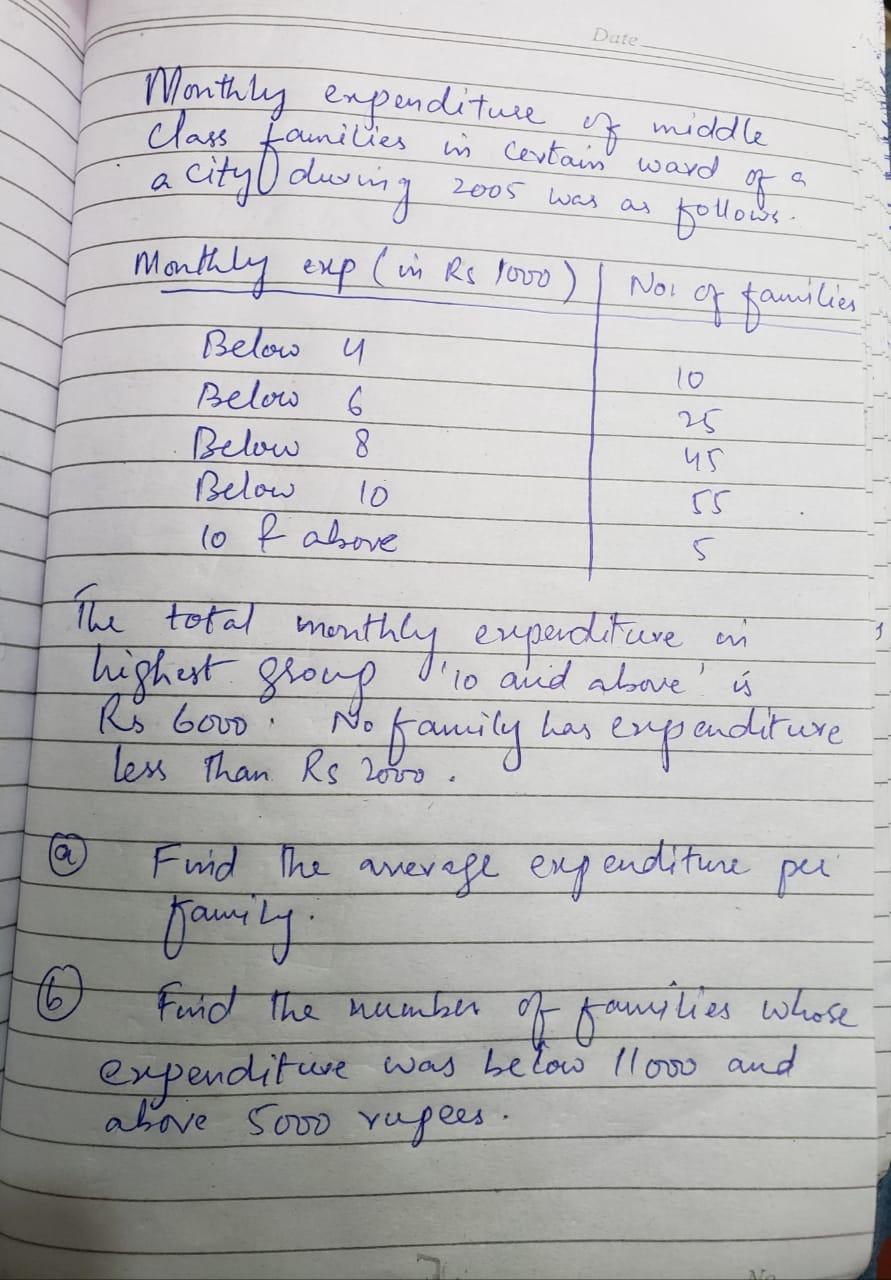 Date
Monthly expenditure of middle
Class families in certain ward of a
a city during 2005 was as follows.
Monthly exp (in Rs 1000) No. of families
Below 4 10
Below 6 25
Below 8 45
Below 10 55
10 & above 5
The total monthly expenditure in
highest group '10 and above' is
Rs 6000. No family has expenditure
less than Rs 2000.
(a) Find the average expenditure per
family.
(b) Find the number of families whose
expenditure was below 11000 and
above 5000 rupees.
No